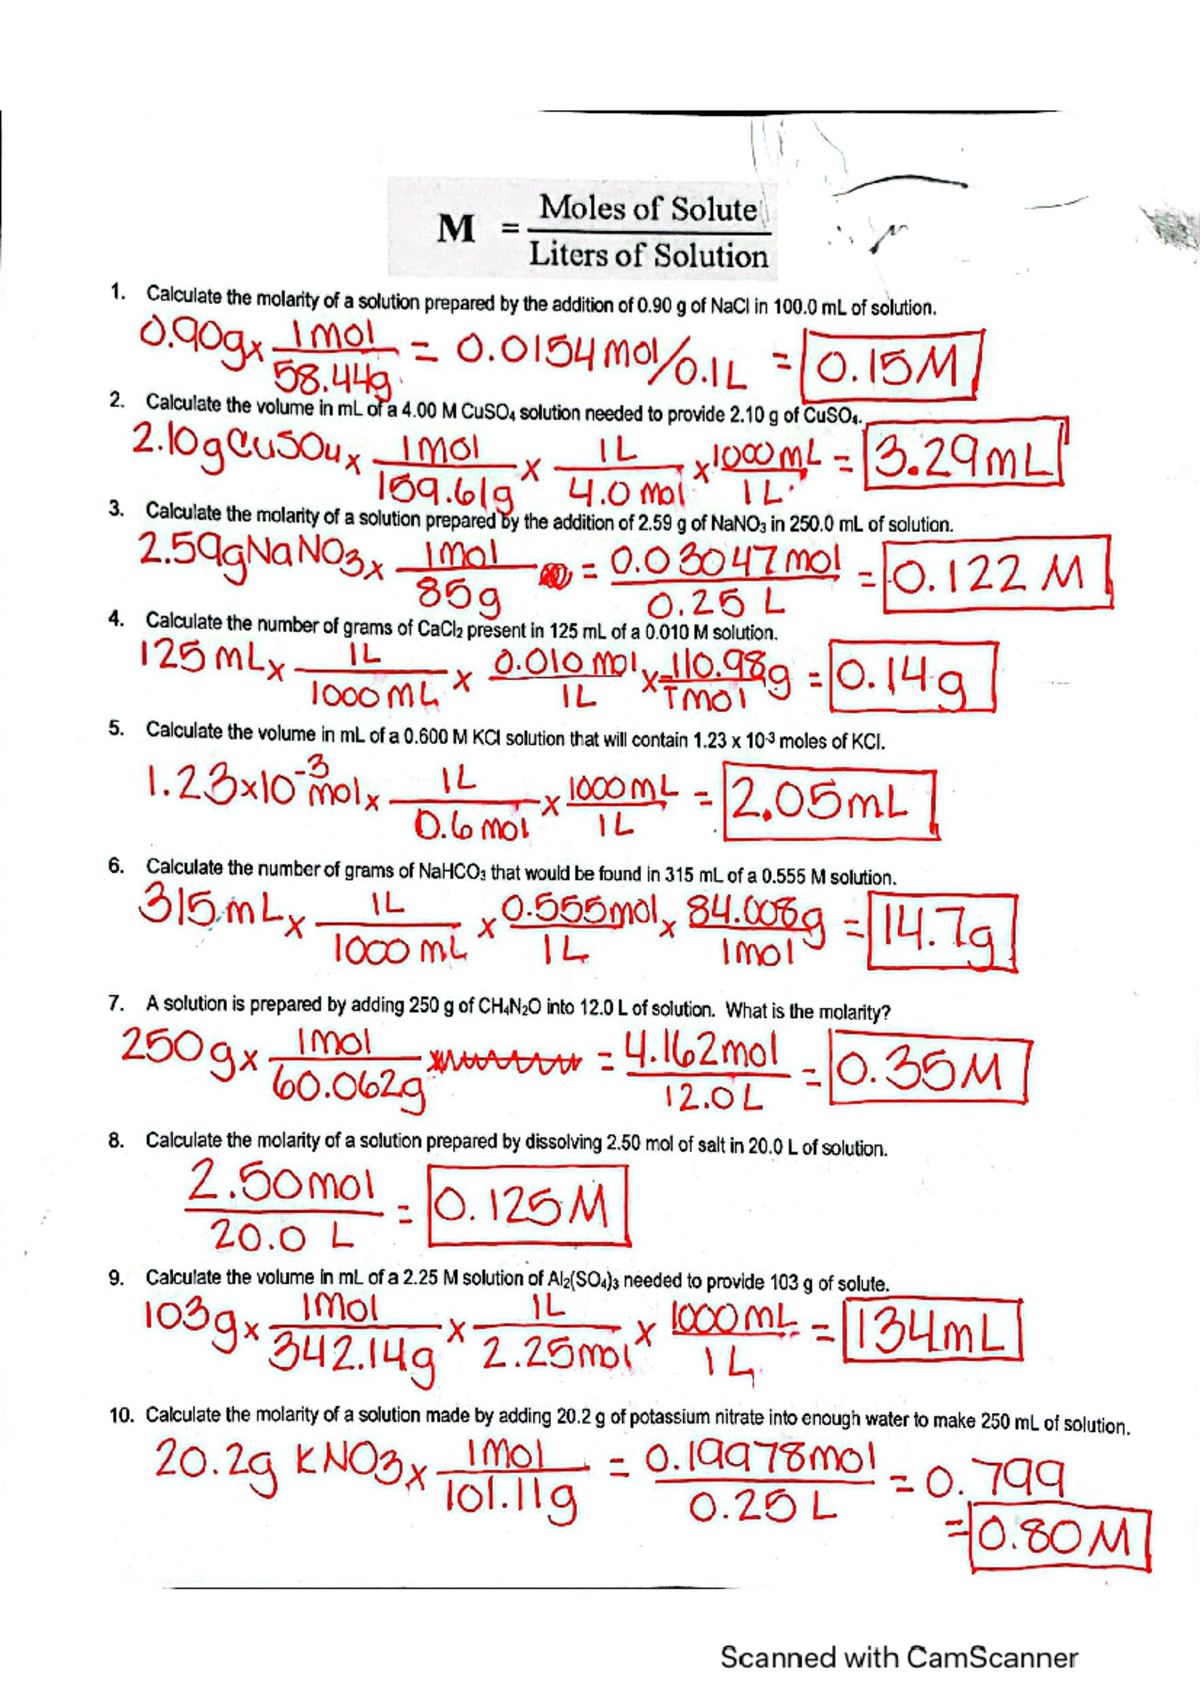 M = Moles of Solute / Liters of Solution
1. Calculate the molarity of a solution prepared by the addition of 0.90 g of NaCl in 100.0 mL of solution.
0.90g x 1mol / 58.44g = 0.0154mol/0.1L = 0.15M
2. Calculate the volume in mL of a 4.00 M CuSO₄ solution needed to provide 2.10 g of CuSO₄.
2.10g CuSO4 x 1mol / 159.61g x 1L / 4.0 mol x 1000mL / 1L = 3.29mL
3. Calculate the molarity of a solution prepared by the addition of 2.59 g of NaNO₃ in 250.0 mL of solution.
2.59gNaNO3 x 1mol / 85g = 0.03047mol / 0.25 L = 0.122 M
4. Calculate the number of grams of CaCl₂ present in 125 mL of a 0.010 M solution.
125 mL x 1L / 1000mL x 0.010 mol / 1L x 110.98g / 1mol = 0.14g
5. Calculate the volume in mL of a 0.600 M KCl solution that will contain 1.23 x 10⁻³ moles of KCl.
1.23x10⁻³ mol x 1L / 0.6 mol x 1000mL / 1L = 2.05mL
6. Calculate the number of grams of NaHCO₃ that would be found in 315 mL of a 0.555 M solution.
315mL x 1L / 1000 mL x 0.555mol / 1L x 84.008g / 1mol = 14.7g
7. A solution is prepared by adding 250 g of CH₄N₂O into 12.0 L of solution. What is the molarity?
250g x 1mol / 60.062g = 4.162mol / 12.0L = 0.35M
8. Calculate the molarity of a solution prepared by dissolving 2.50 mol of salt in 20.0 L of solution.
2.50mol / 20.0 L = 0.125M
9. Calculate the volume in mL of a 2.25 M solution of Al₂(SO₄)₃ needed to provide 103 g of solute.
103g x 1mol / 342.14g x 1L / 2.25mol x 1000mL / 1L = 134mL
10. Calculate the molarity of a solution made by adding 20.2 g of potassium nitrate into enough water to make 250 mL of solution.
20.2g KNO3 x 1mol / 101.11g = 0.19978mol / 0.25 L = 0.799
= 0.80M
Scanned with CamScanner